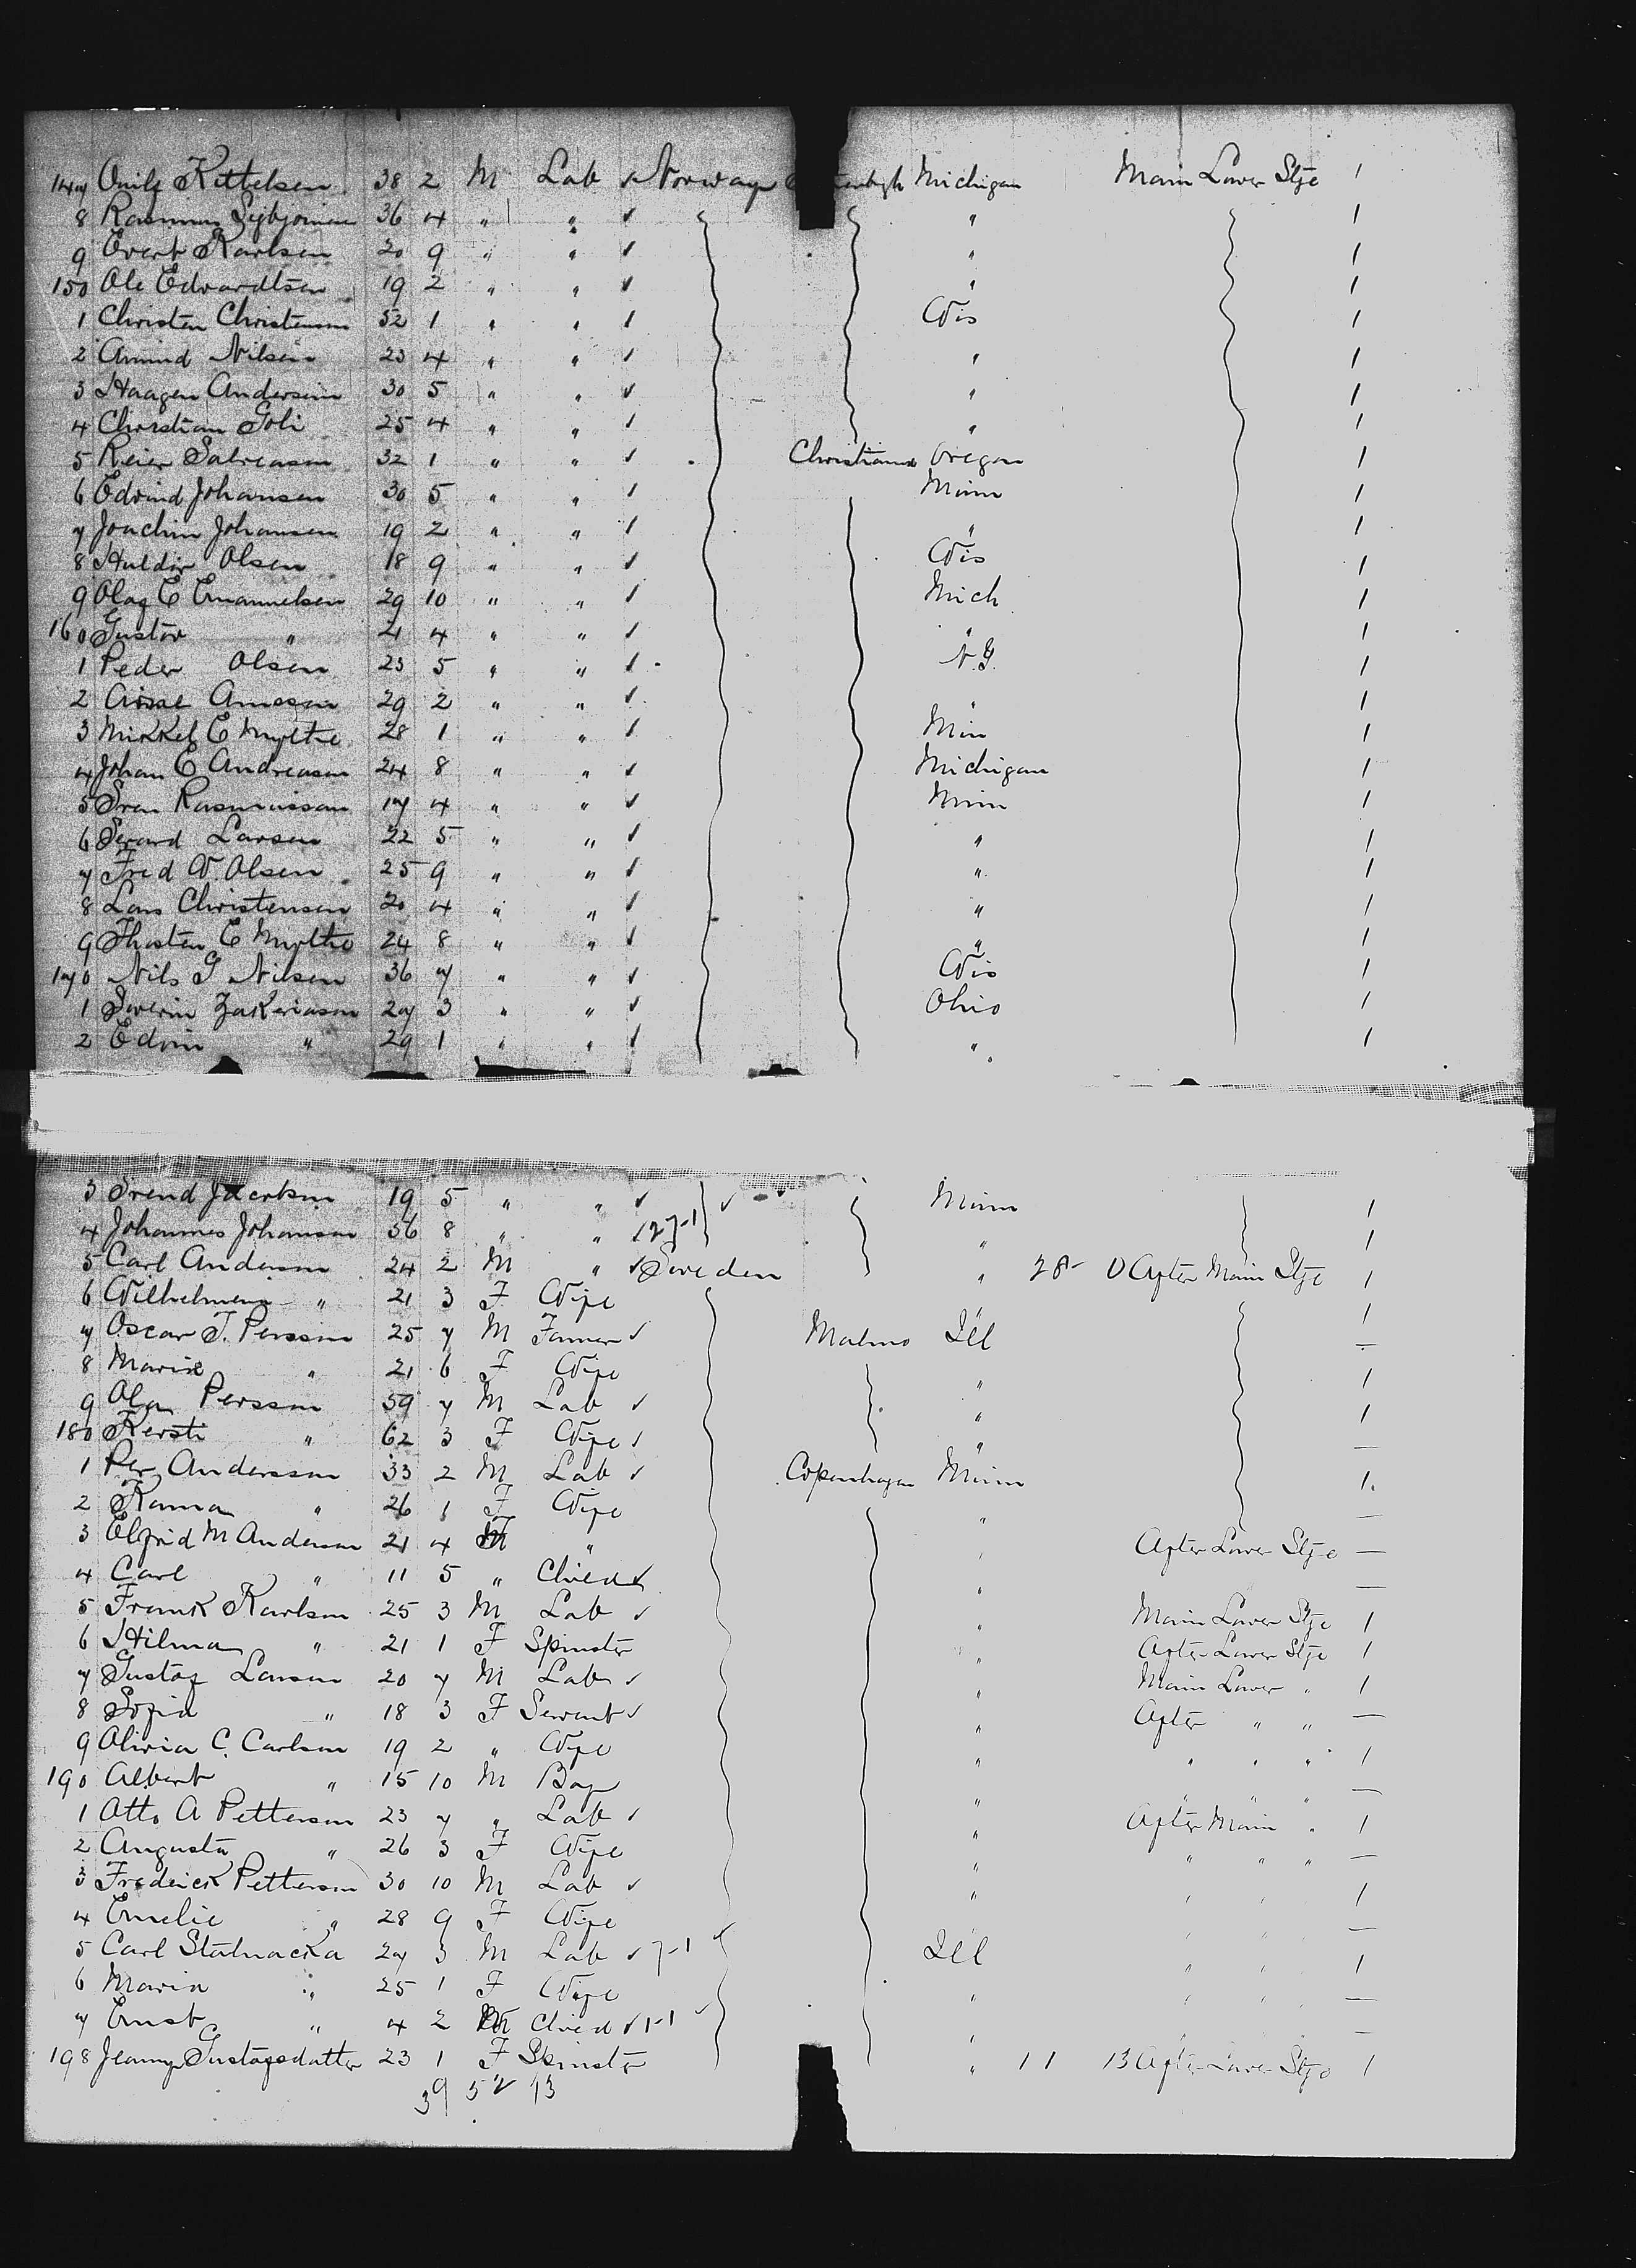 147 Emily Kittelsen 38 2 M Lab ✓ Norway Michigan Main Lower Stge 1
8 Rasmus 36 4 " " ✓ " 1
9 Evert Karlsen 20 9 " " ✓ " 1
150 Ole Edvardtsen 19 2 " " ✓ " 1
1 Christen Christensen 52 1 " " ✓ Wis 1
2 Amund Nilsen 23 4 " " ✓ " 1
3 Haagen Andersen 30 5 " " ✓ " 1
4 Christian Goli 25 4 " " ✓ " 1
5 Reier 32 1 " " ✓ Christiania Oregon 1
6 Edvind Johansen 30 5 " " ✓ Minn 1
7 Joachim Johansen 19 2 " " ✓ " 1
8 Haldor Olsen 18 9 " " ✓ Wis 1
9 Olaf E Emanuelsen 29 10 " " ✓ Mich 1
160 Gustav " 21 4 " " ✓ " 1
1 Peder Olsen 23 5 " " ✓ 1
2 29 2 " " ✓ " 1
3 Mikkel E Mylthe 28 1 " " ✓ Min 1
4 Johan E Andreasen 24 8 " " ✓ Michigan 1
5 Sven Rasmussen 17 4 " " ✓ Minn 1
6 Larsen 22 5 " " ✓ " 1
7 Fred W. Olsen 25 9 " " ✓ " 1
8 Lars Christensen 20 4 " " ✓ " 1
9 Thosten E Mylthe 24 8 " " ✓ " 1
170 Nils G Nilsen 36 7 " " ✓ Wis 1
1 Severin Zakeriasen 27 3 " " ✓ Ohio 1
2 Edvin " 29 1 " " ✓ " 1
3 Svend Jacobsen 19 5 " " ✓ ✓ Minn 1
4 Johannes Johansen 56 8 " " " 1
5 Carl Anderson 24 2 M " ✓ Sweden " 28 0 After Main Stge 1
6 Wilhelmina " 21 3 F Wife " 1
7 Oscar T. Persson 25 7 M Farmer ✓ Malmo Ill —
8 Marie " 21 6 F Wife " 1
9 Ola Persson 59 7 M Lab ✓ " 1
180 Kersti " 62 3 F Wife ✓ " —
1 Per Andersson 33 2 M Lab ✓ Copenhagen Minn 1
2 Kama " 26 1 F Wife " —
3 Elfrid M Anderson 21 4 F " " After Lower Stge —
4 Carl " 11 5 " Child ✓ " —
5 Frank Karlson 25 3 M Lab ✓ " Main Lower Stge 1
6 Hilma " 21 1 F Spinster " After Lower Stge 1
7 Gustaf Larson 20 7 M Lab ✓ " Main Lower " 1
8 Sofia " 18 3 F Servant ✓ " After " " —
9 Olivia C. Carlson 19 2 " Wife " " " " 1
190 Albert " 15 10 M Boy " " " " —
1 Otto A Petterson 23 7 " Lab ✓ " After Main " 1
2 Augusta " 26 3 F Wife " " " " —
3 Frederick Petterson 30 10 M Lab ✓ " " " " 1
4 Emelie " 28 9 F Wife " —
5 Carl Stalnacka 27 3 M Lab ✓ 7-1 ✓ Ill " " 1
6 Maria " 25 1 F Wife " " " " —
7 Ernst " 4 2 M Child ✓ 1-1 ✓ " —
198 Jenny Gustafsdatter 23 1 F Spinster " 11 13 After Lower Stge 1
39 52 13